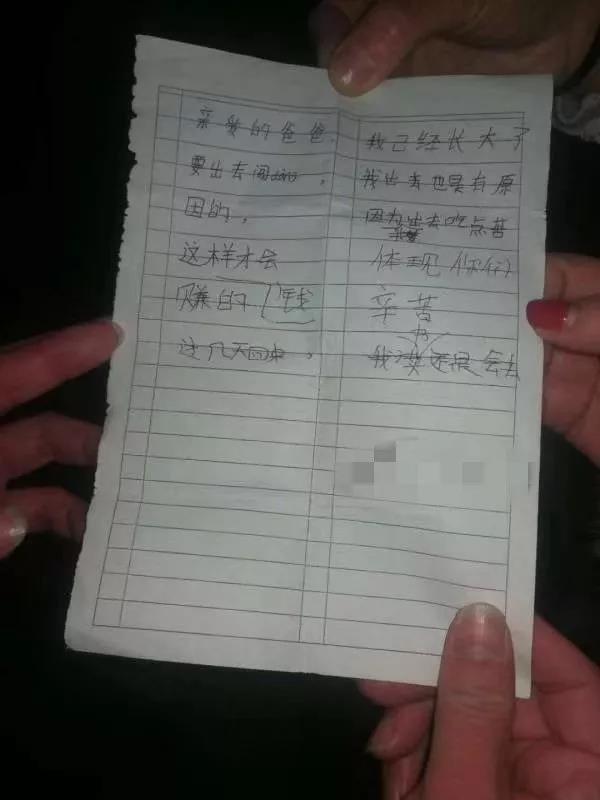 亲爱的爸爸 我已经长大了
要出去闯 , 我出去也是有原
因的, 因为出去吃点苦
这样才会 体现你们
赚的钱 辛苦
这几天回来, 我 还是会去